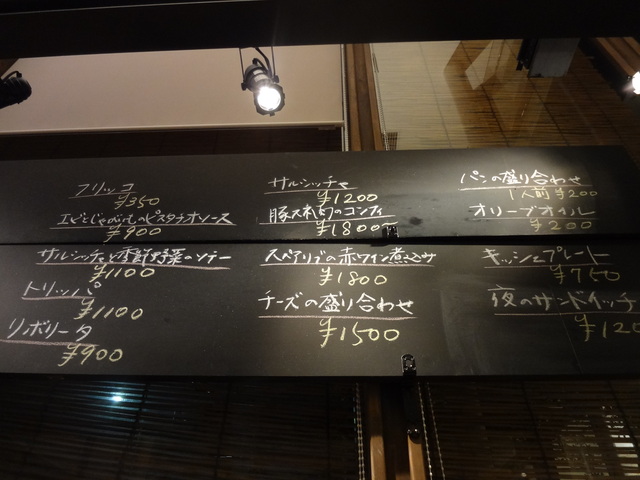 フリッコ
¥350
エビとじゃがいものピスタチオソース
¥900
サルシッチャと季節野菜のソテー
¥1100
トリッパ
¥1100
リボリータ
¥900
サルシッチャ
¥1200
豚スネ肉のコンフィ
¥1800
スペアリブの赤ワイン煮込み
¥1800
チーズの盛り合わせ
¥1500
パンの盛り合わせ
1人前 ¥200
オリーブオイル
¥200
キッシュプレート
¥750
夜のサンドイッチ
¥120